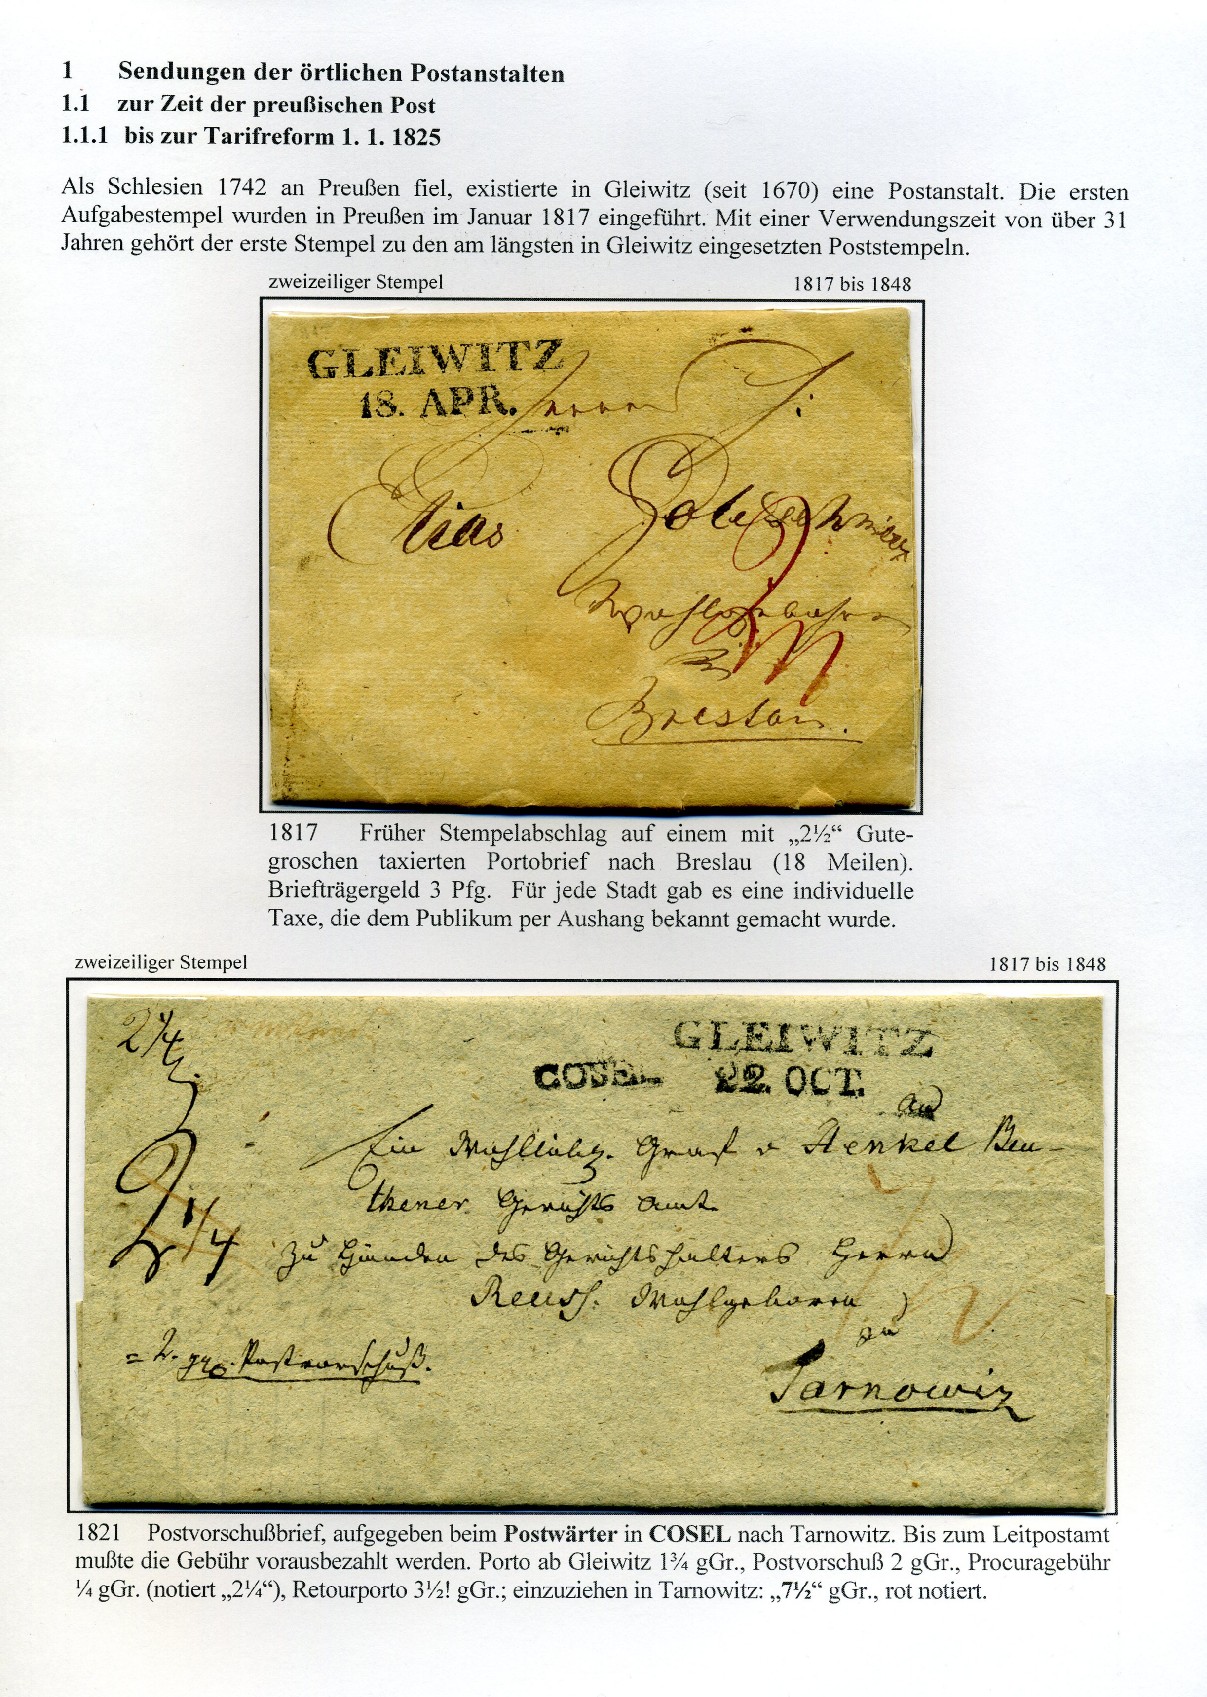 1 Sendungen der örtlichen Postanstalten
1.1 zur Zeit der preußischen Post
1.1.1 bis zur Tarifreform 1. 1. 1825
Als Schlesien 1742 an Preußen fiel, existierte in Gleiwitz (seit 1670) eine Postanstalt. Die ersten
Aufgabestempel wurden in Preußen im Januar 1817 eingeführt. Mit einer Verwendungszeit von über 31
Jahren gehört der erste Stempel zu den am längsten in Gleiwitz eingesetzten Poststempeln.
zweizeiliger Stempel 1817 bis 1848
GLEIWITZ
18. APR.
Herrn
Elias
Breslau.
1817 Früher Stempelabschlag auf einem mit „2½“ Gute-
groschen taxierten Portobrief nach Breslau (18 Meilen).
Briefträgergeld 3 Pfg. Für jede Stadt gab es eine individuelle
Taxe, die dem Publikum per Aushang bekannt gemacht wurde.
zweizeiliger Stempel 1817 bis 1848
2 1/4
GLEIWITZ
COSEL 22. OCT.
An
Ein Wohllöbl. Graf v Henkel Beu-
thener Gerichts Amt
2 1/4
zu Händen des Gerichtshalters Herrn
Reush. Wohlgeboren
zu
= 2. ggr. Postvorschuß.
Tarnowiz
1821 Postvorschußbrief, aufgegeben beim Postwärter in COSEL nach Tarnowitz. Bis zum Leitpostamt
mußte die Gebühr vorausbezahlt werden. Porto ab Gleiwitz 1¾ gGr., Postvorschuß 2 gGr., Procuragebühr
¼ gGr. (notiert „2¼“), Retourporto 3½! gGr.; einzuziehen in Tarnowitz: „7½“ gGr., rot notiert.